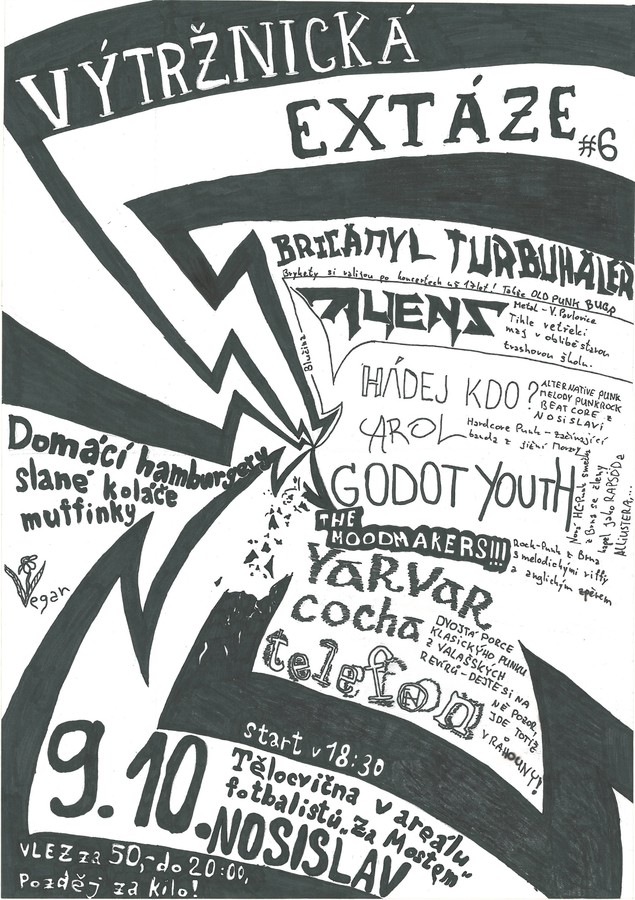 VÝTRŽNICKÁ
EXTÁZE #6
BRICANYL TURBUHALER
Brykety si valijou po koncertech už 17let! Takže OLD PUNK BUBO
ALIENS
Metal - V. Pavlovice
Tihle vetřelci
maj v oblibě starou
trashovou školu.
Blučina
HÁDEJ KDO?
ALTERNATIVE PUNK
MELODY PUNKROCK
BEATCORE z
NOSISLAVI
AROL
Hardcore Punk - začínající
banda z jižní Moravy
GODOT YOUTH
Nová HC-Punk smečka
z Brna se členy
kapel jako RAPSÓDA
ALLUSTERA,...
THE
MOODMAKERS!!!
Rock-Punk z Brna
s melodickými riffy
a anglickým zpěvem
YARVAR
cocha
telefon
DVOJTÁ PORCE
KLASICKÝHO PUNKU
Z VALAŠSKÝCH
REVÍRŮ - DEJTE SI NA
NĚ POZOR,
JDE TOTIŽ
O
VRAHOUNY!
Domácí hamburgery
slané koláče
muffinky
Vegan
9.10.
start v 18:30
Tělocvična v areálu
fotbalistů „Za Mostem"
NOSISLAV
VLEZ za 50,- do 20:00,
Pozděj za kilo!